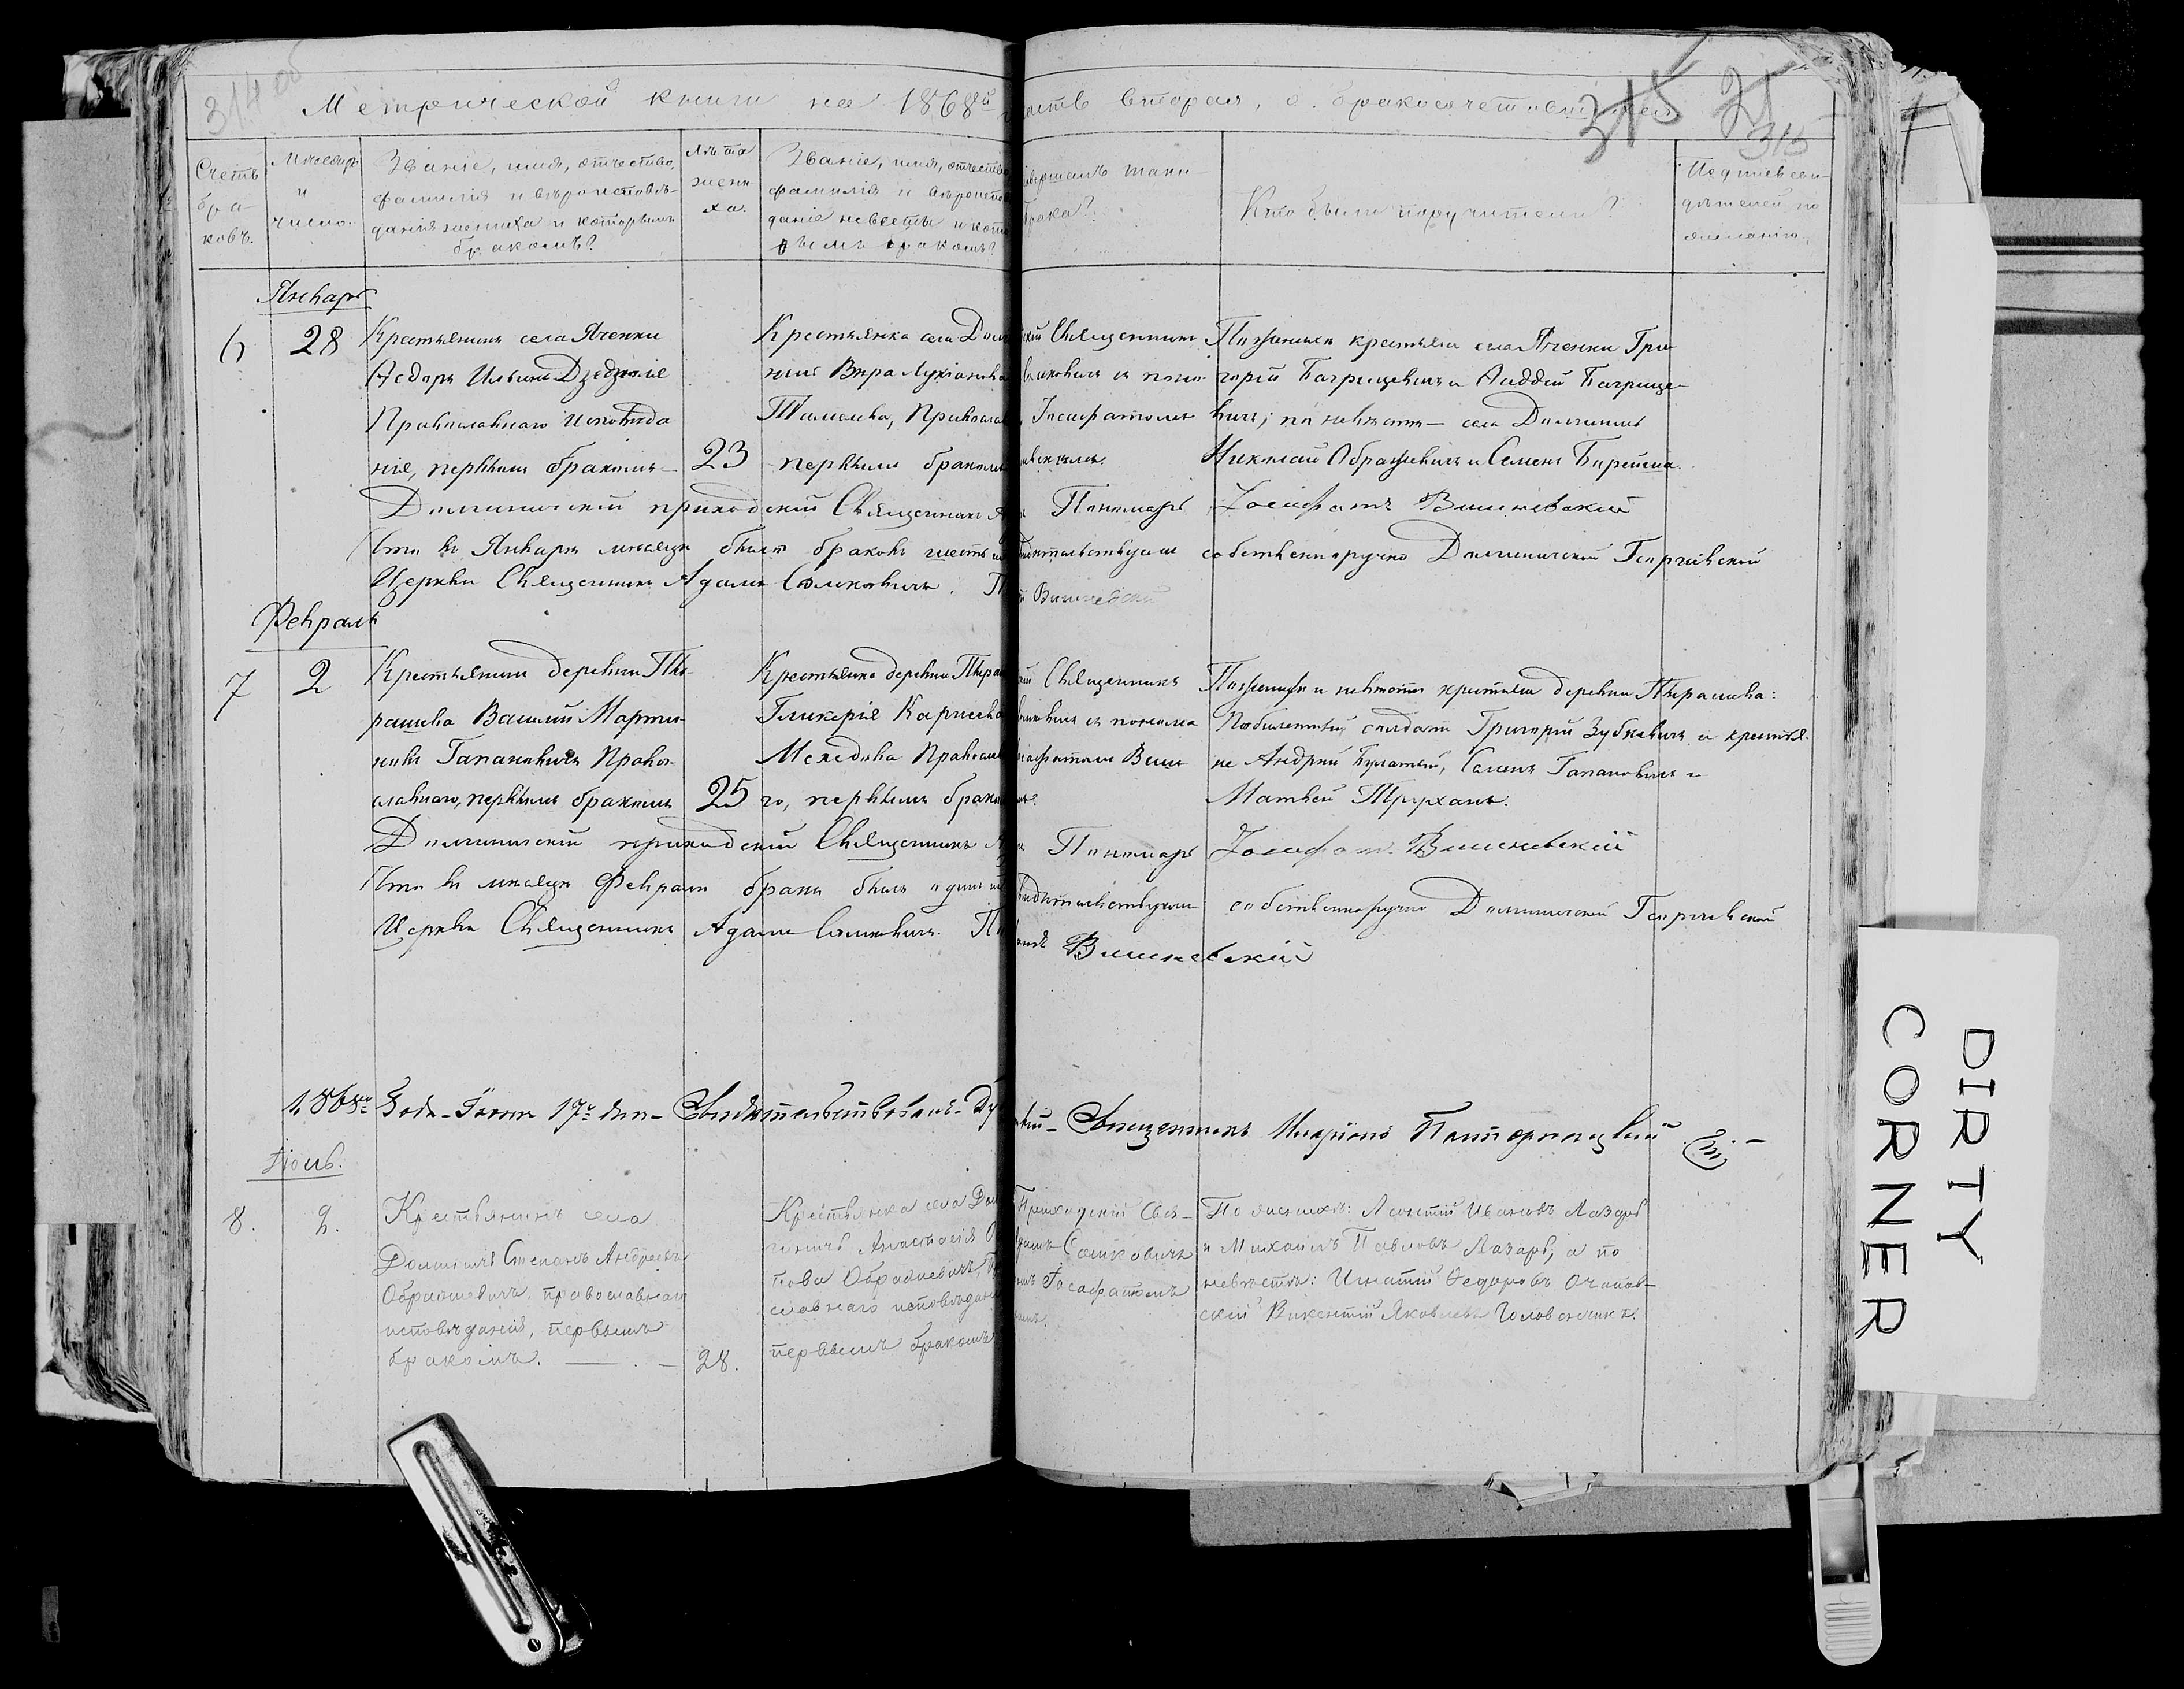 314 об
315
315
Метрической книги на 1868й
асть вторая, о бракосочетавшихся
Счетъ бра-ковъ.
Мѣсяцъ и число.
Званіе, имя, отчество,
фамилія и вѣроисповѣ-
даніе жениха и которымъ
бракомъ?
Лѣта жени-ха.
Званіе, имя, отчество
фамилія и вѣроиспо
даніе невѣсты и кото
рымъ бракомъ?
овершалъ таин
брака?
Кто были поручители?
Подпись сви-
дѣтелей по
желанію.
Январь
6
28
Крестьянинъ села Яченки
Ѳедоръ Ильинъ
Православнаго исповѣда
ніе, первымъ бракомъ
23
Крестьянка села Дол
Вѣра Лукіанова
Православ
первымъ бракомъ
кій Священникъ
Іосафатомъ
По женихѣ крестьяне села Яченки Гри
горій Багрицевичъ и Авдѣй Багрице-
вичъ; по невѣстѣ — села Долгиничъ
Николай Ображевичъ и Семенъ
Долгиничскій приходскій Священникъ А
Пономарь Іосафатъ Вишневскій
Что въ Январѣ мѣсяцѣ было браковъ шесть
видѣтельствуемъ собственноручно Долгиничской Георгіевской
Церкви Священникъ Адамъ Самковичъ. П
й Вишневскій
Февраль
7
2
Крестьянинъ деревни Пѣ-
рашева Василій Марти-
новъ Гапановичъ Право-
славнаго, первымъ бракомъ
25
Крестьянка деревни Пѣра
Гликерія Карпова
Православ
го, первымъ брако
Священникъ
пономар
осафатомъ Виш
По женихѣ и невѣстѣ крестьяне деревни Пѣрашева:
билетный солдатъ Григорій Зубковичъ и крестья-
не Андрей Булатый, Семенъ Гапановичъ и
Матвей Труханъ.
Долгиничскій приходскій Священникъ А
Пономарь Іосафатъ Вишневскій
Что въ мѣсяцѣ Февралѣ бракъ былъ одинъ
видѣтельствуемъ собственноручно Долгиничской Георгіевской
Церкви Священникъ Адамъ Самковичъ. П
Вишневскій
1868го года Іюня 17го дня Свидѣтельствовалъ Ду
вный Священникъ Иларіонъ Пастернацкій
Іюль.
8.
2.
Крестьянинъ села
Долгиничъ Степанъ Андреевъ
Ображевичъ, православнаго
исповѣданія, первымъ
бракомъ.
28.
Крестьянка села Дол
гиничъ Анастасія О
пова Ображевичъ, Пр
славнаго исповѣдан
первымъ бракомъ
Приходскій Свя-
дамъ Самковичъ
омъ Іосафатомъ
По женихѣ: Леонтій Ивановъ Лазарь
и Михаилъ Павловъ Лазарь, а по
невѣстѣ: Игнатій Ѳедоровъ
скій Викентій Яковлевъ
DIRTY
CORNER